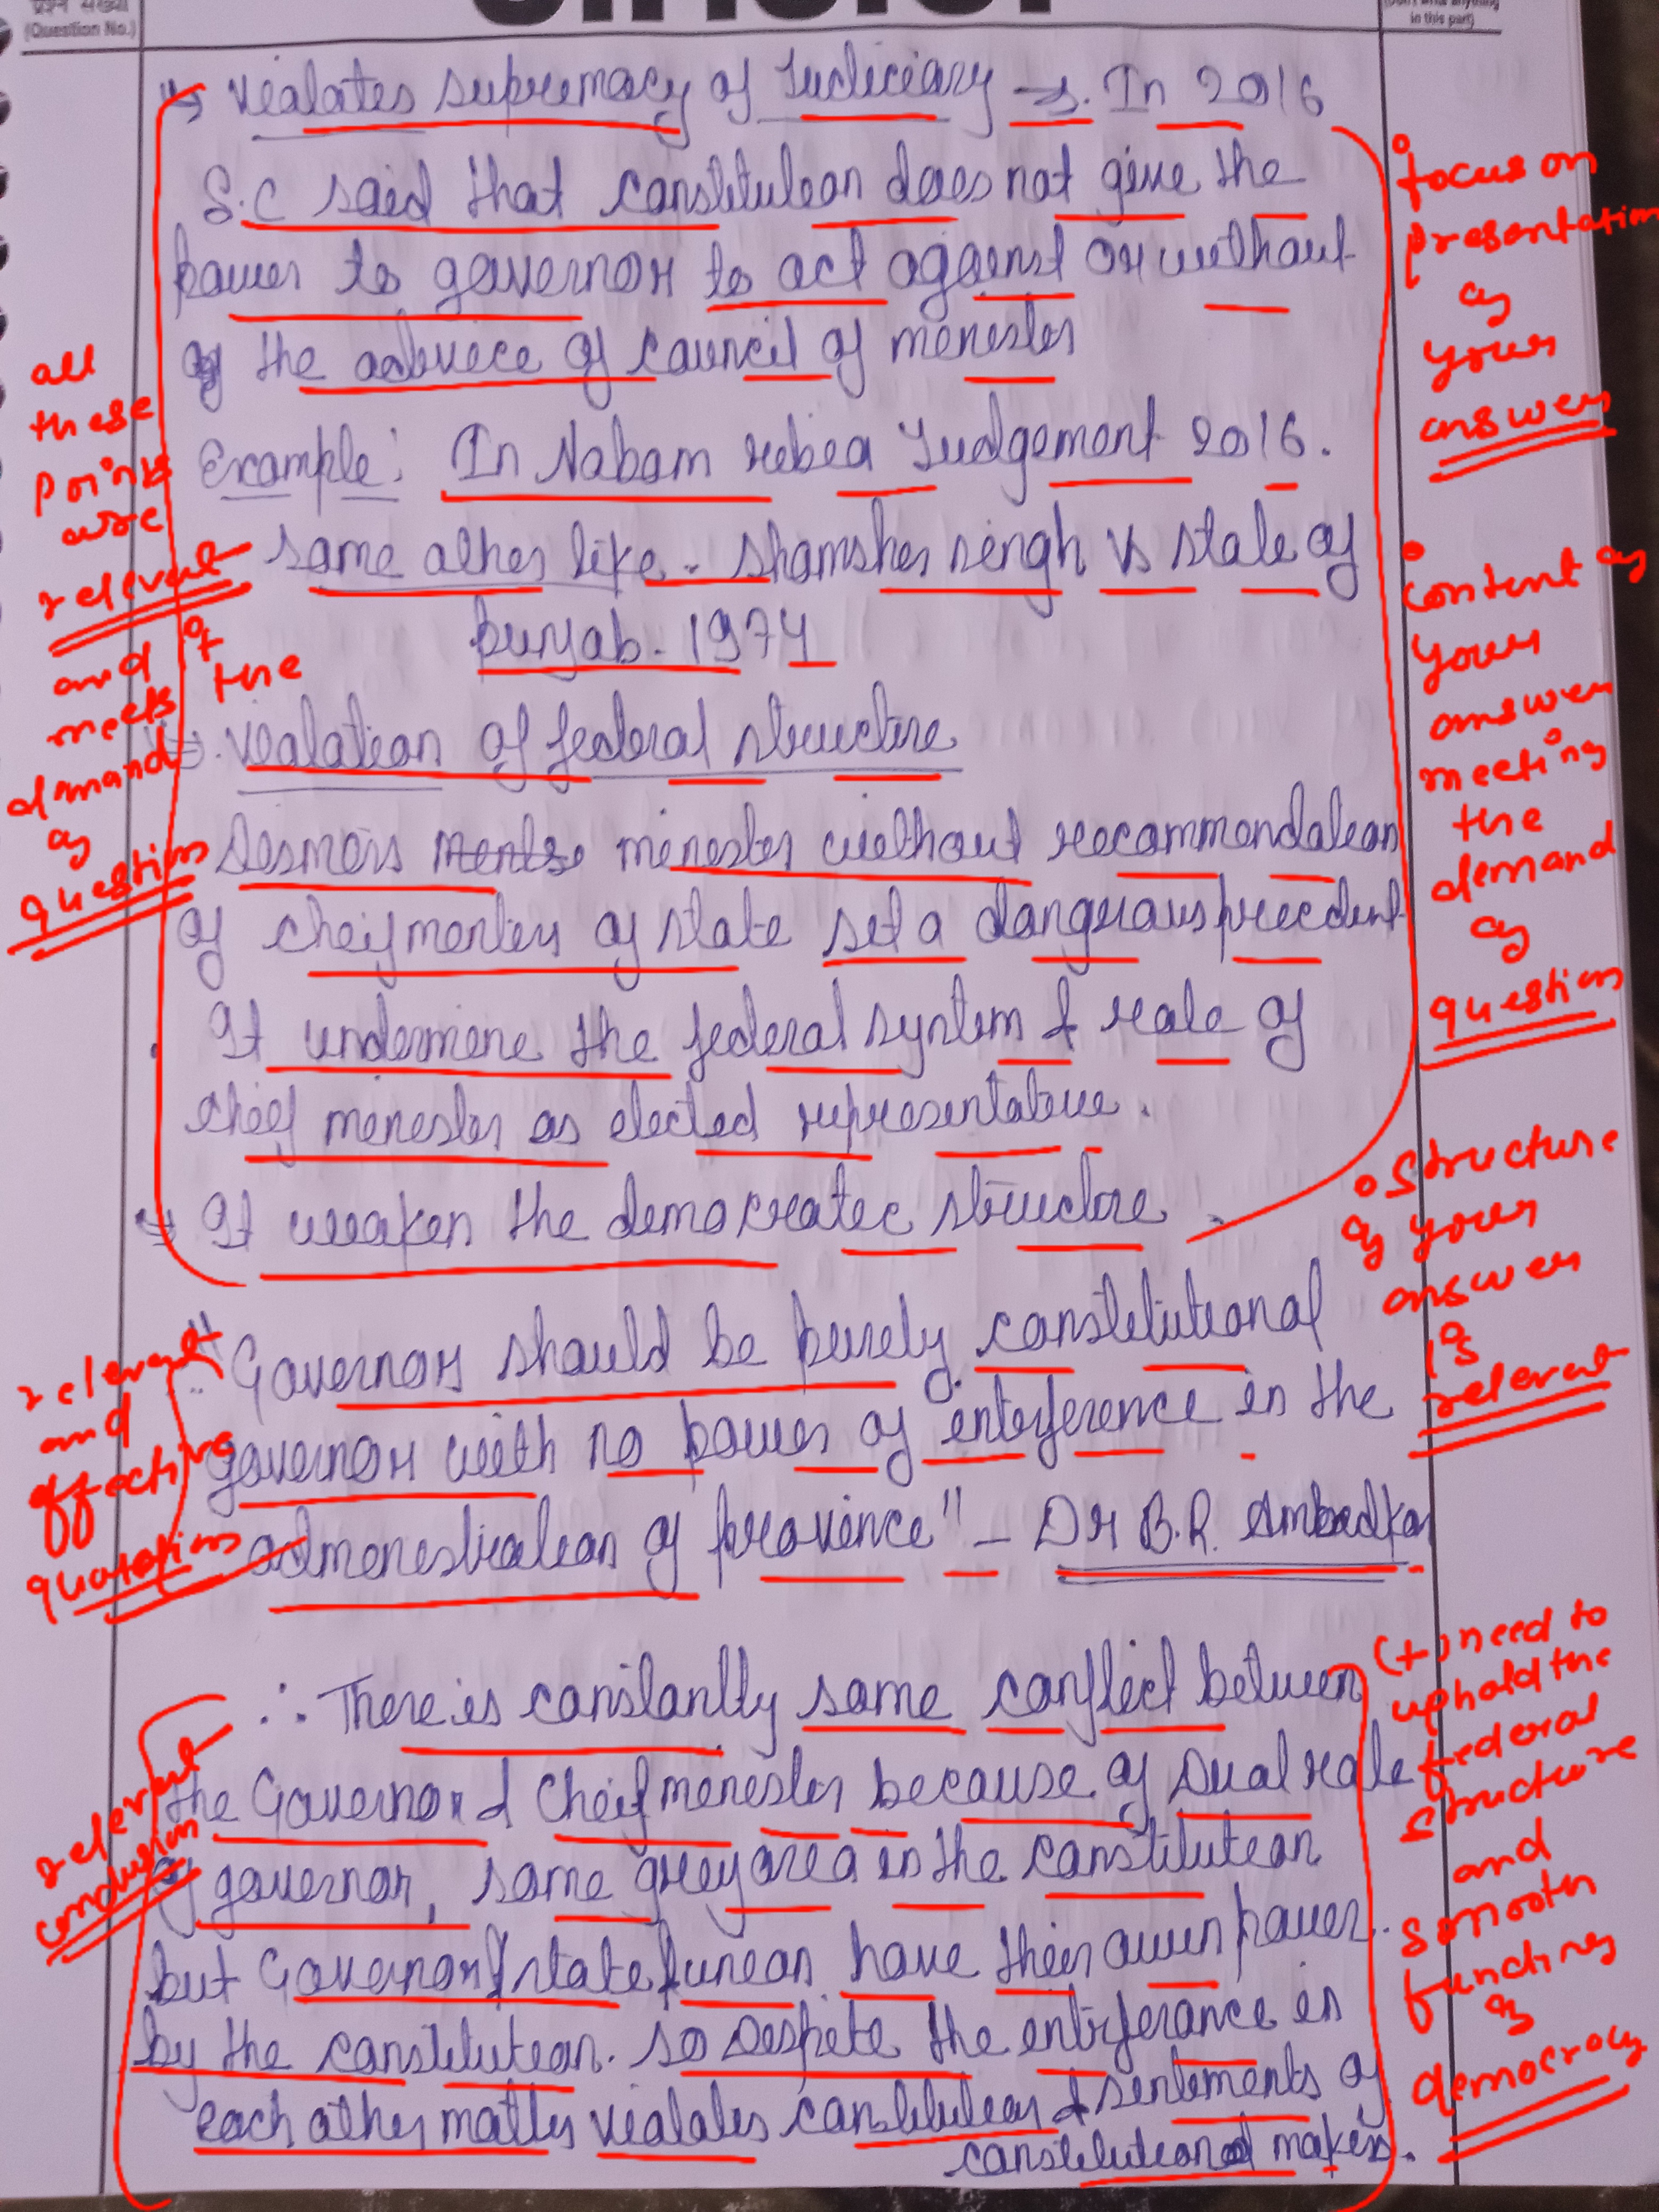 प्रश्न संख्या
(Question No.)
(Don't write anything
in this part)
→ Vialates supremacy of Judiciary → In 2016
S.C said that constitution does not give the
power to governor to act against or without
of the advice of council of menester
Example: In Nabam rebia Judgement 2016.
same other like - Shamsher singh vs state of
punjab - 1974
→ vialation of federal structure
Desmois menester without recommendation
of cheif menter of state set a dangerous precedent
It undermene the federal system & role of
cheif menester as elected representateve.
→ It weaken the democratec structure.
"Governor should be purely constitutional
governor with no power of enterference in the
admenestration of provence" - Dr B.R. Ambedkar
∴ There is constantly some conflect between
the Governor & Cheif menester because of Dual role
of governor, some grey area in the constitution
but Governor & state funcan have their own power
by the constitution. so Despite the enterferance in
each other matter vialates constitution & sentements of
constitutional makers.
all
these
points
are
relevant
and
meets
the
demand
of
question
relevant
and
effective
quotations
relevant
conclusion
focus on
presentation
of
your
answer
content of
your
answer
meeting
the
demand
of
question
Structure
of your
answer
is
relevant
(+) need to
uphold the
federal
structure
and
smooth
functing
of
democracy